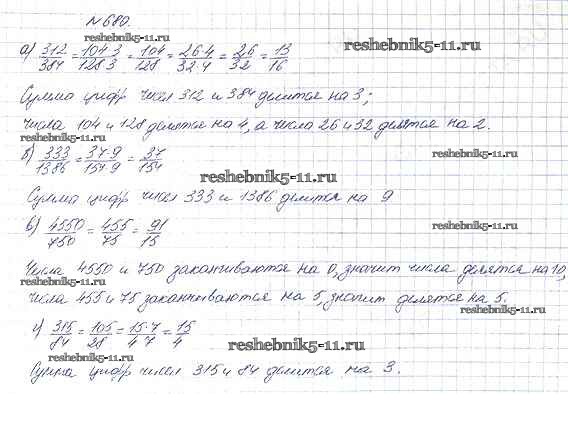 №680.
reshebnik5-11.ru
а) 312/384 = 104·3/128·3 = 104/128 = 26·4/32·4 = 26/32 = 13/16 reshebnik5-11.ru
reshebnik5-11.ru
Сумма цифр чисел 312 и 384 делится на 3;
числа 104 и 128 делятся на 4, а числа 26 и 32 делятся на 2.
reshebnik5-11.ru
б) 333/1386 = 37·9/154·9 = 37/154 reshebnik5-11.ru
reshebnik5-11.ru
Сумма цифр чисел 333 и 1386 делится на 9
в) 4550/750 = 455/75 = 91/15 reshebnik5-11.ru
Числа 4550 и 750 заканчиваются на 0, значит числа делятся на 10,
reshebnik5-11.ru
числа 455 и 75 заканчиваются на 5, значит делятся на 5.
reshebnik5-11.ru
г) 315/84 = 105/28 = 15·7/4·7 = 15/4
reshebnik5-11.ru
reshebnik5-11.ru
Сумма цифр чисел 315 и 84 делится на 3.